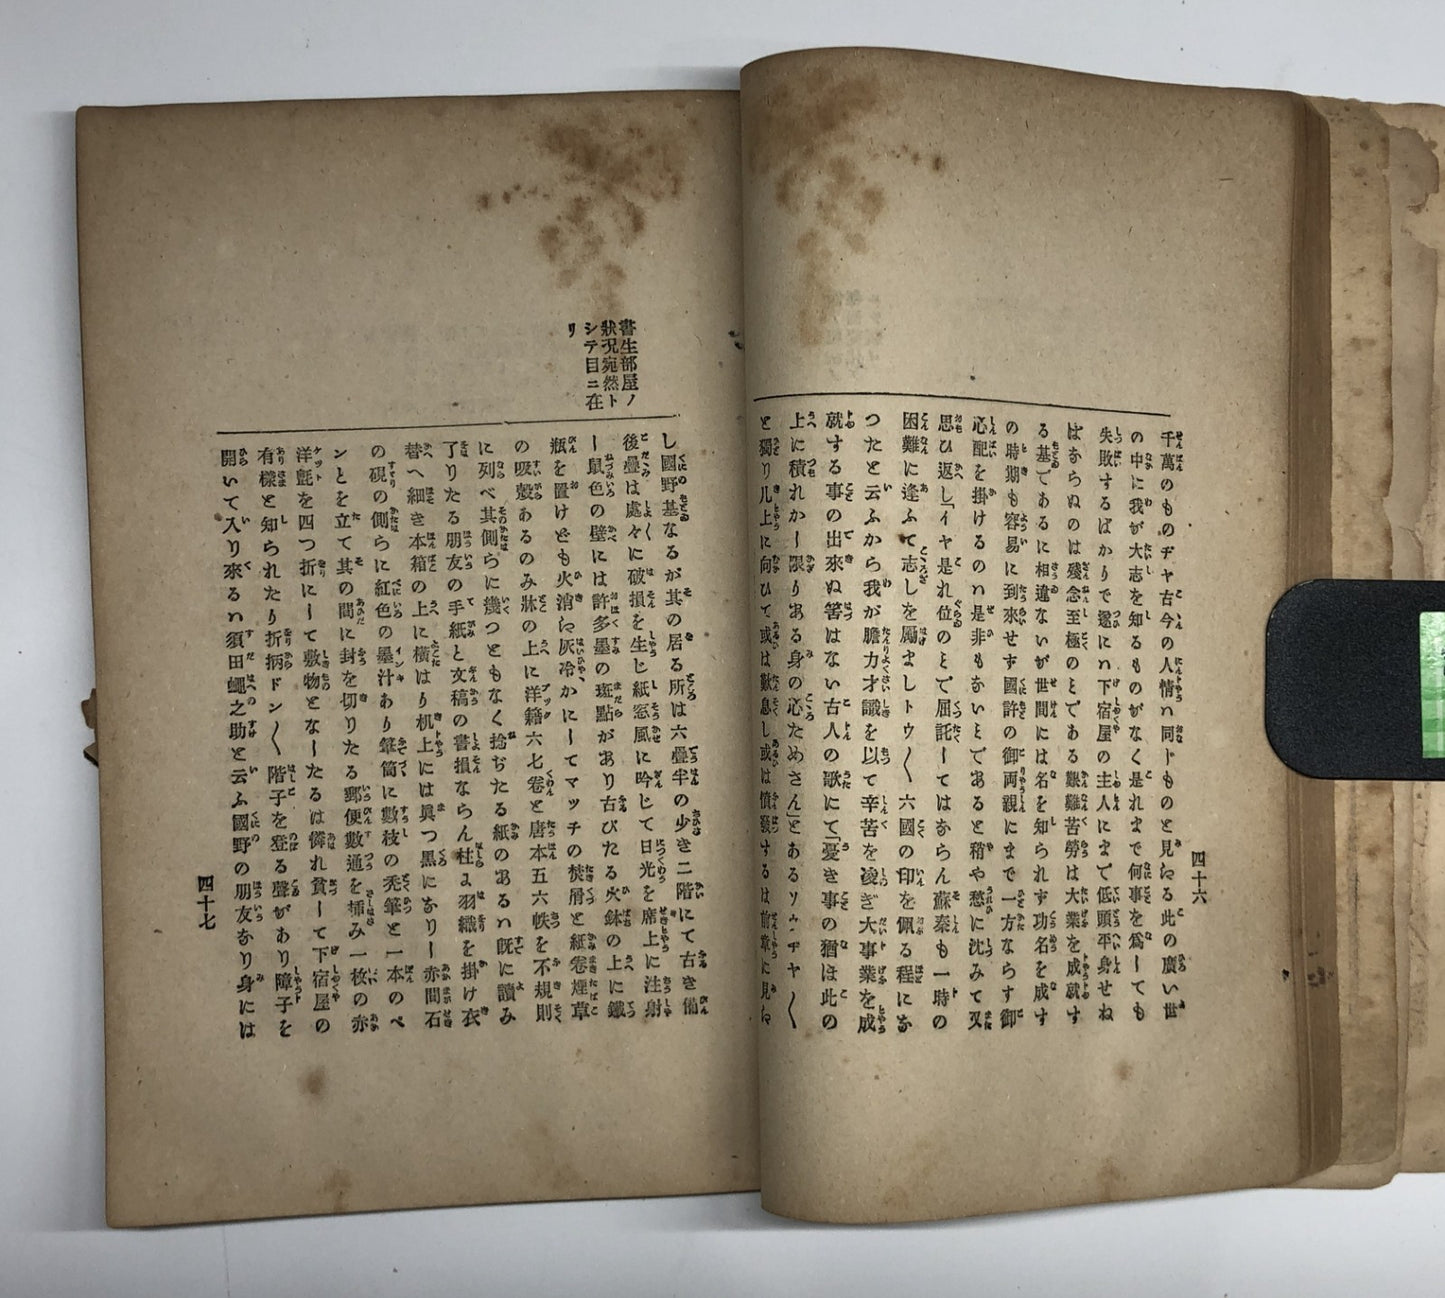 四十六
千萬のものヂヤ古今の人情ハ同じものと見ゆる此の廣い世
の中に我が大志を知るものがなく是れまで何事を爲しても
失敗するばかりで遂にハ下宿屋の主人にまで低頭平身せね
ばならぬのは殘念至極のヿである艱難苦勞は大業を成就す
る基であるに相違ないが世間には名を知られず功名を成す
の時期も容易に到來せず國許の御両親にまで一方ならす御
心配を掛けるのハ是非もないヿであると稍や愁に沈みて又
思ひ返し「イヤ是れ位のヿで屈託してはならん蘇秦も一時の
困難に逢ふて志しを勵ましトウ〳〵六國の印を佩る程にな
つたと云ふから我が膽力才識を以て辛苦を凌ぎ大事業を成
就する事の出來ぬ筈はない古人の歌にて「憂き事の猶ほ此の
上に積れかし限りある身の心ためさん」とあるソウヂヤ〳〵
と獨り几上に向ひて或は歎息し或は憤發するは前章に見ゆ
書生部屋ノ
狀况宛然ト
シテ目ニ在
リ
し國野基なるが其の居る所は六疊半の少さ二階にて古き備
後疊は處々に破損を生じ紙窓風に吟じて日光を席上に注射
し鼠色の壁には許多墨の斑點があり古びたる火鉢の上に鐵
瓶を置けとも火消ゑ灰冷かにしてマッチの焚屑と紙巻煙草
の吸殼あるのみ牀の上に洋籍六七卷と唐本五六帙を不規則
に列べ其側らに幾つともなく捻ぢたる紙のあるハ既に讀み
了りたる朋友の手紙と文稿の書損ならん柱よ羽織を掛け衣
替へ細き本箱の上に横はり机上には眞つ黒になりし赤間石
の硯の側らに紅色の墨汁あり筆筒に數枝の禿筆と一本のペ
ンとを立て其の間に封を切りたる郵便數通を插み一枚の赤
洋氈を四つ折にして敷物となしたるは慥れ貧して下宿屋の
有樣と知られたり折柄ドン〳〵階子を登る聲があり障子を
開いて入り來るハ須田蠅之助と云ふ國野の朋友なり身には
四十七